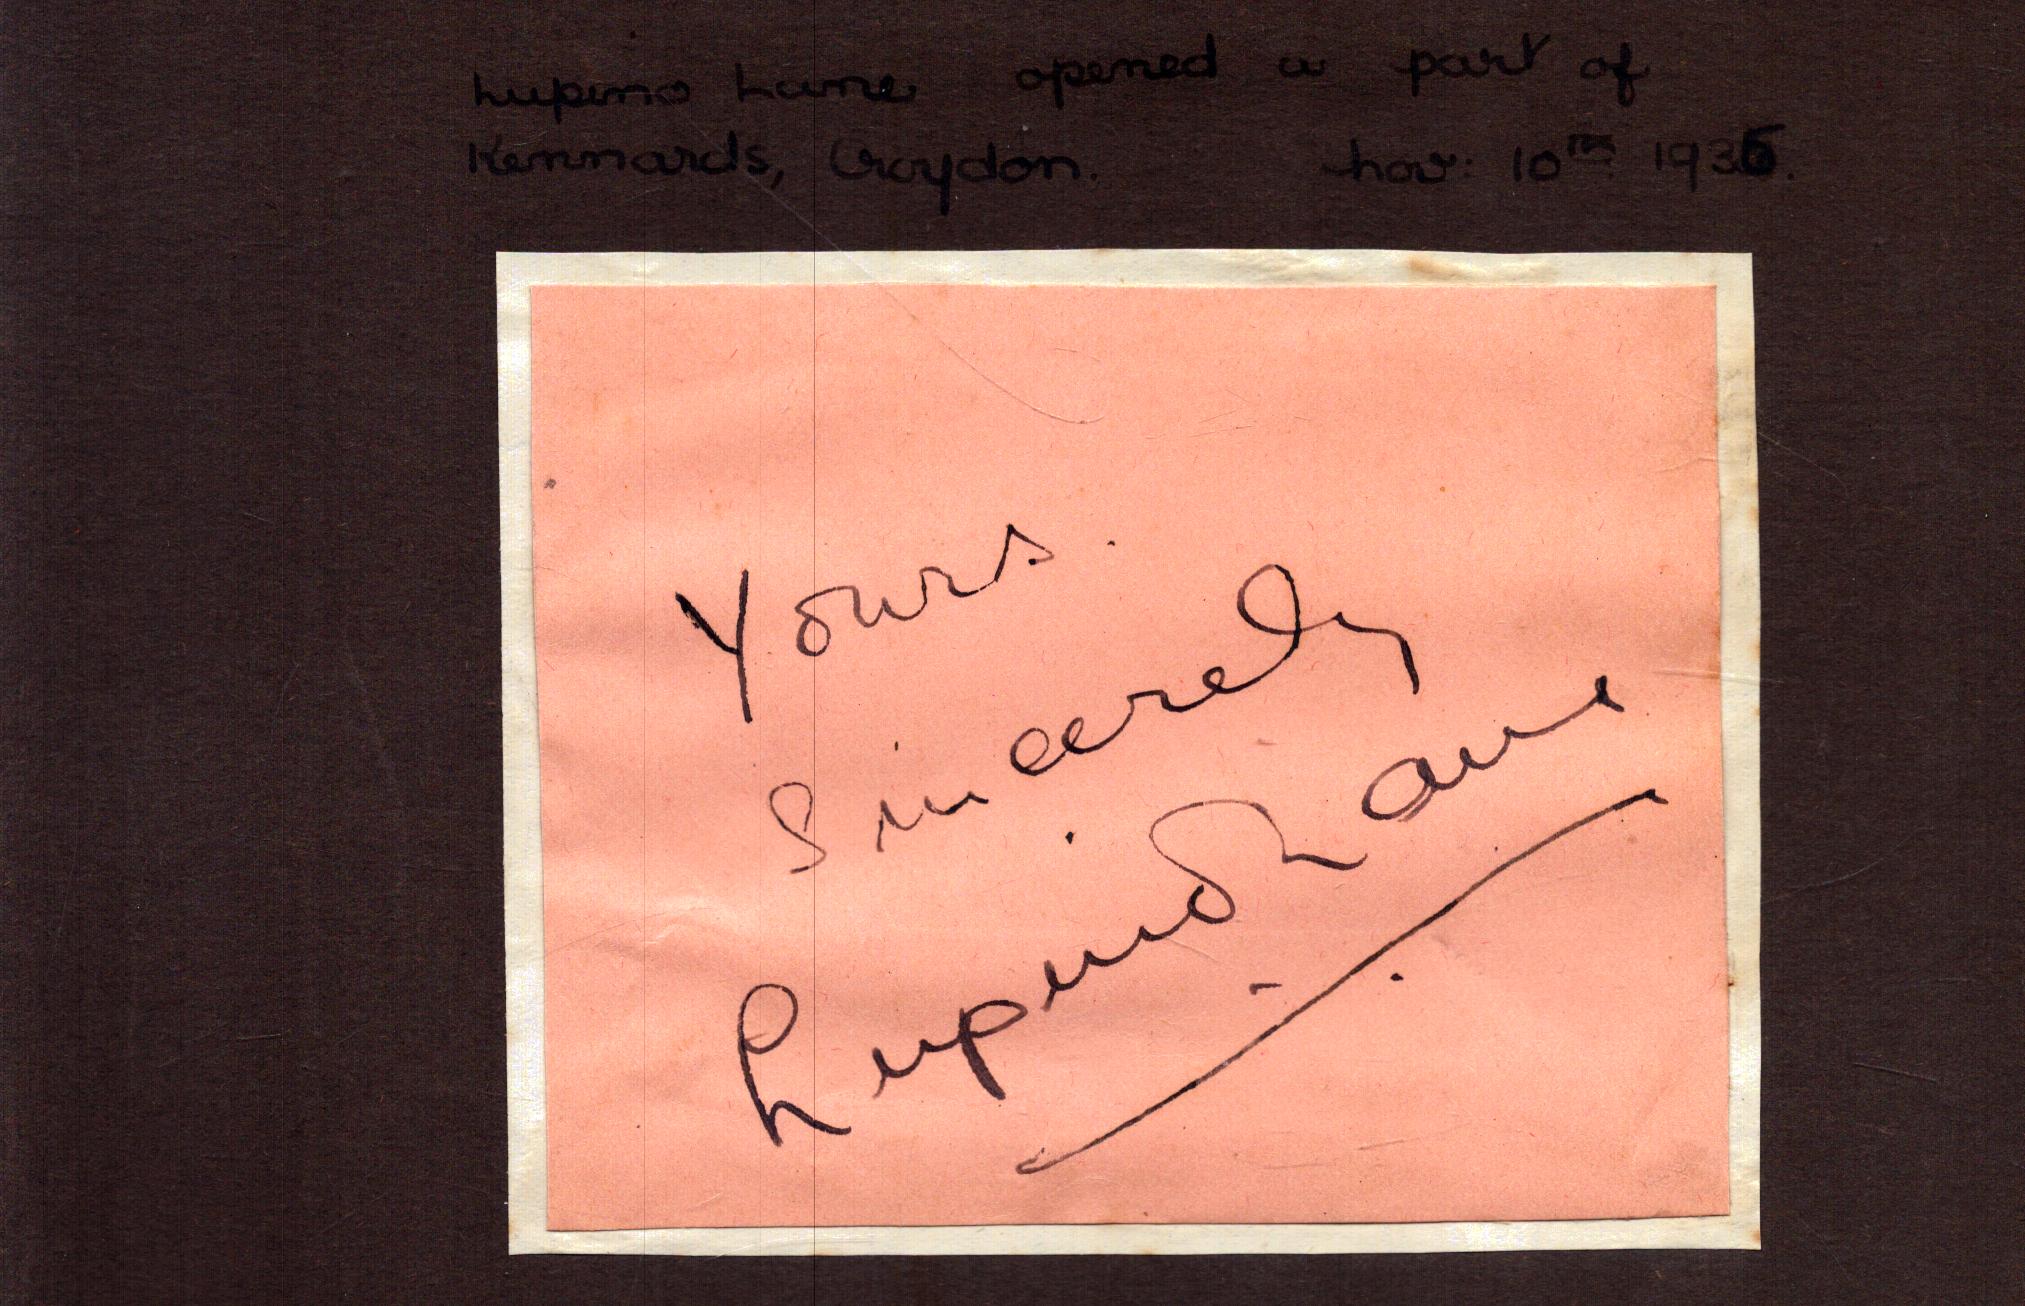 Lupino Lane opened a part of
Kennards, Croydon. Nov: 10th 1936.
Yours
Sincerely
Lupino Lane